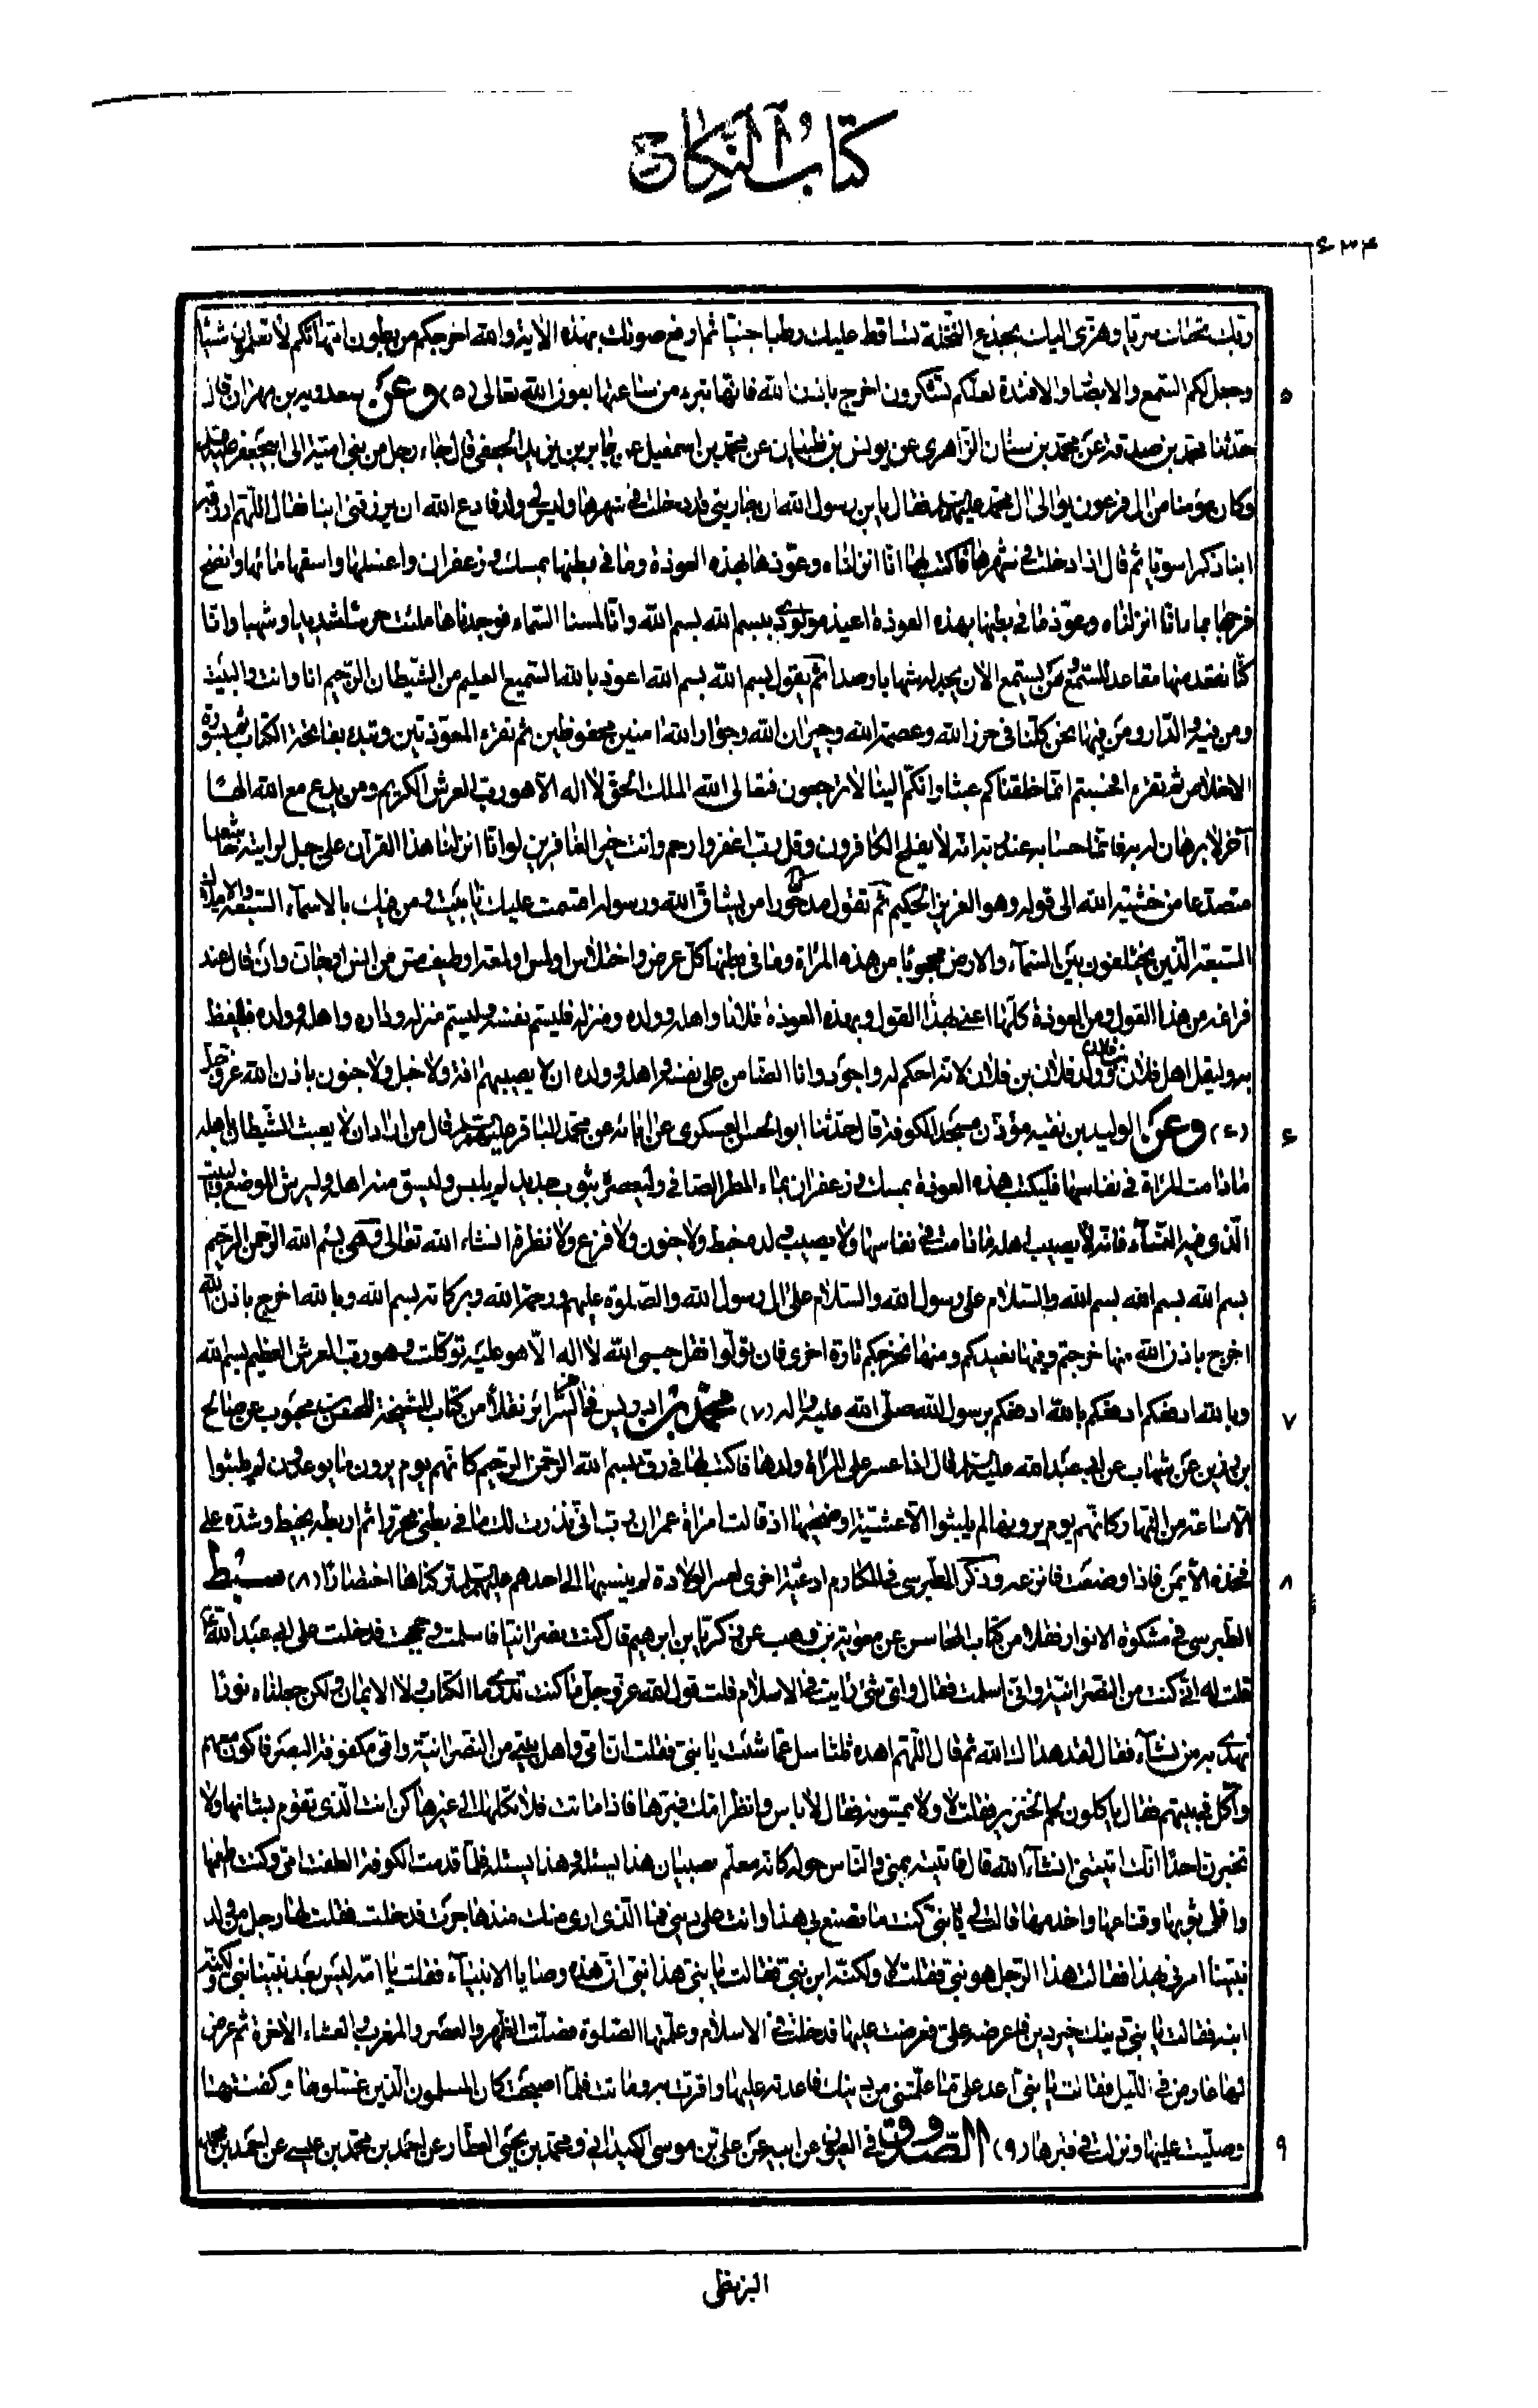 كتاب النكاح
٤٣٤
ربك تحتك سريا وهزى اليك بجذع النخلة تساقط عليك رطبا جنيا ثم ارفع صوتك بهذه الاية والله اخرجكم من بطون امهاتكم لا تعلمون شيئا
وجعل لكم السمع والابصار والافئدة لعلكم تشكرون اخرج باذن الله فانها تبرء من ساعتها بعون الله تعالى (٥) وعن سعدويه بن مهران قال
٥
حدثنا محمد بن صدقة عن محمد بن سنان الزاهرى عن يونس بن ظبيان عن محمد بن اسمعيل عن جابر بن يزيد الجعفى قال جاء رجل من بنى امية الى ابيجعفر
وكان مؤمنا من ال فرعون يوالى ال محمد عليهم فقال يابن رسول الله ان جاريتى قد دخلت فى شهرها وليس لى ولد فادع الله ان يرزقنى ابنا فقال اللهم ارزقه
ابنا ذكرا سويا ثم قال اذا دخلت فى شهرها فاكتب لها انا انزلناه وعوذها بهذه العوذة وما فى بطنها بمسك وزعفران واغسلها واسقها مائها وانضح
فرجها بماء انا انزلناه وعوذ ما فى بطنها بهذه العوذة اعيذ مولودى ببسم الله بسم الله وانا لمسنا السماء فوجدناها ملئت حرسا شديدا وشهبا وانا
كنا نقعد منها مقاعد للسمع فمن يستمع الان يجد له شهابا رصدا ثم يقول بسم الله بسم الله اعوذ بالله السميع العليم من الشيطان الرجيم انا وانت والبيت
ومن فيه والدار ومن فيها نحن كلنا فى حرز الله وعصمة الله وجيران الله وجوار الله امنين محفوظين ثم تقرء المعوذتين وتبدء بفاتحة الكتاب ثم بسورة
الاخلاص ثم تقرء افحسبتم انما خلقناكم عبثا وانكم الينا لا ترجعون فتعالى الله الملك الحق لا اله الا هو رب العرش الكريم ومن يدع مع الله الها
آخر لا برهان له به فانما حسابه عند ربه انه لا يفلح الكافرون وقل رب اغفر وارحم وانت خير الغافرين لو انا انزلنا هذا القرآن على جبل لرايته خاشعا
متصدعا من خشية الله الى قوله وهو العزيز الحكيم ثم تقول مدحورا من يشاق الله ورسوله اقسمت عليك يا بيت ومن فيك بالاسماء السبعة والاملاك
السبعة الذين يختلفون بين السماء والارض محجوبا من هذه المراة وما فى بطنها كل عرض واختلاس او لمس او لمعة او طيف مس من انس او جان وان قال عند
فراغه من هذا القول ومن العوذة كلها اعنى بهذا القول وبهذه العوذة فلانا واهله وولده ومنزله فليسم نفسه وليسم منزله وداره واهله وولده فليلفظ
به وليقل اهل فلان بن فلان وولد فلان بن فلان لانه احكم له واجود وانا الضامن على نفسه واهله وولده ان لا يصيبهم افة ولا خبل ولا جنون باذن الله عز وجل
(٦) وعن الوليد بن نقيه مؤذن مسجد الكوفة قال حدثنا ابو الحسن العسكرى عن ابائه عن محمد الباقر عليهم قال من اراد ان لا يعبث الشيطان باهله
٦
ما دامت المراة فى نفاسها فليكتب هذه العوذة بمسك وزعفران بماء المطر الصافى وليعصره بثوب جديد لم يلبس وليسق منه اهله وليرش الموضع والبيت
الذى فيه النساء فانه لا يصيب اهله ما دامت فى نفاسها ولا يصيب ولده خبط ولا جنون ولا فزع ولا نظرة انشاء الله تعالى وهى بسم الله الرحمن الرحيم
بسم الله بسم الله بسم الله والسلام على رسول الله والسلام على ال رسول الله والصلوة عليهم ورحمة الله وبركاته بسم الله وبالله اخرج باذن الله
اخرج باذن الله منها خرجتم وفيها نعيدكم ومنها نخرجكم تارة اخرى فان تولوا فقل حسبى الله لا اله الا هو عليه توكلت وهو رب العرش العظيم بسم الله
وبالله ادفعكم ادفعكم بالله ادفعكم برسول الله صلى الله عليه واله (٧) محمد بن ادريس فى السرائر نقلا من كتاب المشيخة للحسن بن محبوب عن صالح
٧
بن رزين عن شهاب عن ابى عبد الله عليه السلام قال اذا عسر على المراة ولدها فاكتب لها فى رق بسم الله الرحمن الرحيم كانهم يوم يرون ما يوعدون لم يلبثوا
الا ساعة من النهار وكانهم يوم يرونها لم يلبثوا الا عشية او ضحيها اذ قالت امراة عمران رب انى نذرت لك ما فى بطنى محررا ثم اربطه بخيط وشده على
فخذه الايمن فاذا وضعت فانزعه وذكر الطبرسى فى المكارم ادعية اخرى لعسر الولادة لم ينسبها الى احدهم عليهم تركناها اختصارا (٨) سبط
٨
الطبرسى فى مشكوة الانوار نقلا من كتاب المحاسن عن معوية بن وهب عن زكريا بن ابرهيم قال كنت نصرانيا فاسلمت وحججت فدخلت على ابى عبد الله
قلت له انى كنت من النصرانية وانى اسلمت فقال واى شئ رايت فى الاسلام قلت قول الله عز وجل ما كنت تدرى ما الكتاب ولا الايمان ولكن جعلناه نورا
نهدى به من نشآء فقال لقد هداك الله ثم قال اللهم اهده ثلثا سل عما شئت يا بنى فقلت ان امى واهل بيتى من النصرانية وامى مكفوفة البصر فاكون معهم
وآكل فى بيتهم فقال ياكلون لحم الخنزير فقلت لا ولا يمسونه فقال لا باس وانظر امك فبرها فاذا ماتت فلا تكلها الى غيرها كن انت الذى تقوم بشانها ولا
تخبرن احدا انك اتيتنى انشآء الله قال فاتيته بمنى والناس حوله كانه معلم صبيان هذا يسئله وهذا يسئله فلما قدمت الكوفة الطفت امى وكنت اطعمها
وافلى ثوبها وقناعها واخدمها فقالت لى يا بنى ما كنت تصنع بى هذا وانت على دينى فما الذى ارى منك منذ هاجرت فدخلت فقلت لها رجل من ولد
نبينا امرنى بهذا فقالت هذا الرجل هو نبى فقلت لا ولكنه ابن نبى فقالت يا بنى هذا نبى ان هذه وصايا الانبياء فقلت يا امه ليس بعد نبينا نبى ولكنه
ابنه فقالت يا بنى دينك خير دين اعرضه على فعرضت عليها فدخلت فى الاسلام وعلمتها الصلوة فصلت الظهر والعصر والمغرب والعشاء الاخرة ثم عرض
لها عارض فى الليل فقالت يا بنى اعد على ما علمتنى من دينك فاعدته عليها واقرت به وماتت فلما اصبحت كان المسلمون الذين غسلوها وكفنتها
وصليت عليها ونزلت فى قبرها (٩) الصدوق فى العيون عن ابيه عن على بن موسى الكميدانى ومحمد بن يحيى العطار عن احمد بن محمد بن عيسى عن احمد بن محمد
٩
البزنطى